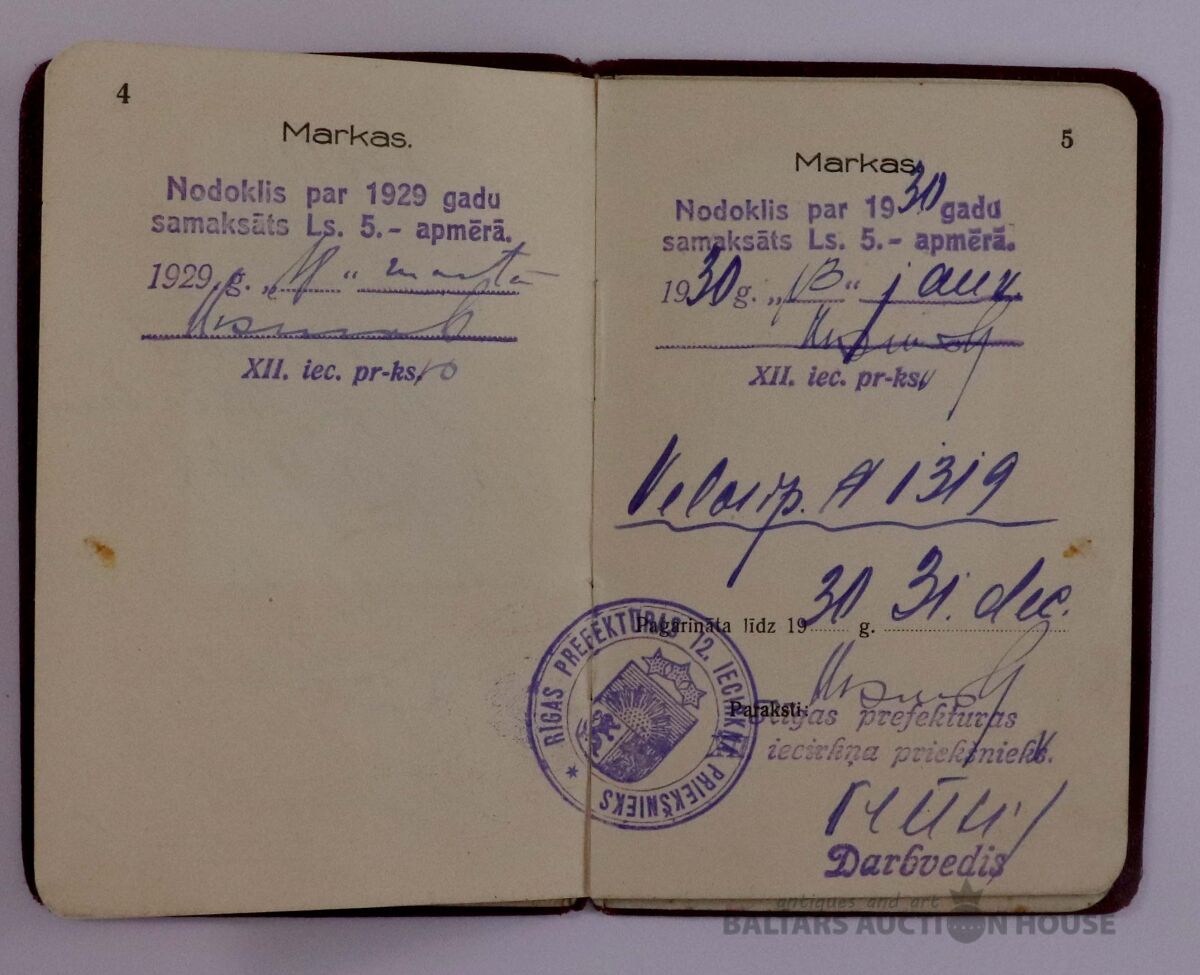 4
Markas.
Nodoklis par 1929 gadu
samaksāts Ls. 5.- apmērā.
1929. g. „11“ martā
XII. iec. pr-ks.
5
Markas.
Nodoklis par 1930 gadu
samaksāts Ls. 5.- apmērā.
1930 g. „13“ janv.
XII. iec. pr-ks.
Velosip. A 1319
Pagarināta līdz 1930 g. 31. dec.
RĪGAS PREFEKTŪRAS 12. IECIRKŅA PRIEKŠNIEKS *
Paraksti:
Rīgas prefektūras
iecirkņa priekšnieks.
Darbvedis
antiques and art
BALTARS AUCTION HOUSE